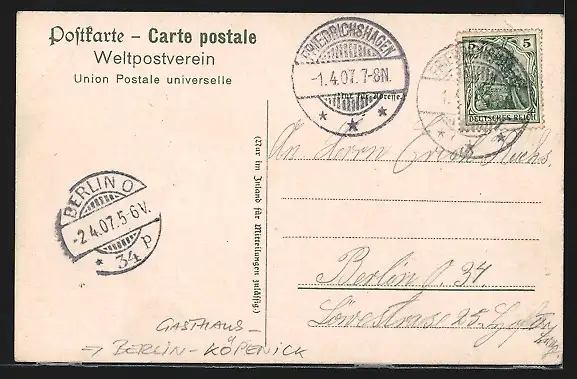 Postkarte – Carte postale
Weltpostverein
Union Postale universelle
FRIEDRICHSHAGEN
-1.4.07.7-8N.
Nur für Adresse.
5 5
DEUTSCHES REICH
An Herrn
(Nur im Inland für Mitteilungen zulässig)
BERLIN O
-2.4.07.5-6V.
34 p
Berlin O. 34
Löwestrasse 25.
GASTHAUS –
→ BERLIN-KÖPENICK